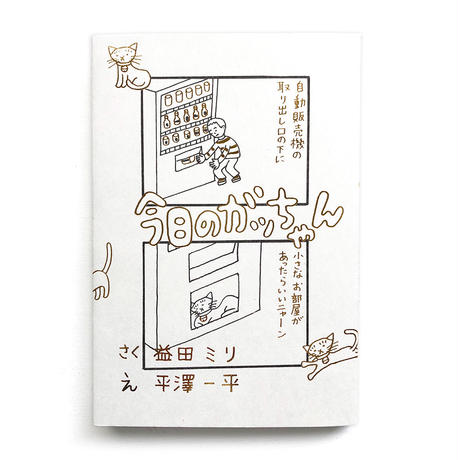 自動販売機の
取り出し口の下に
今日のガッちゃん
小さなお部屋が
あったらいいニャーン
さく 益田ミリ
え 平澤一平